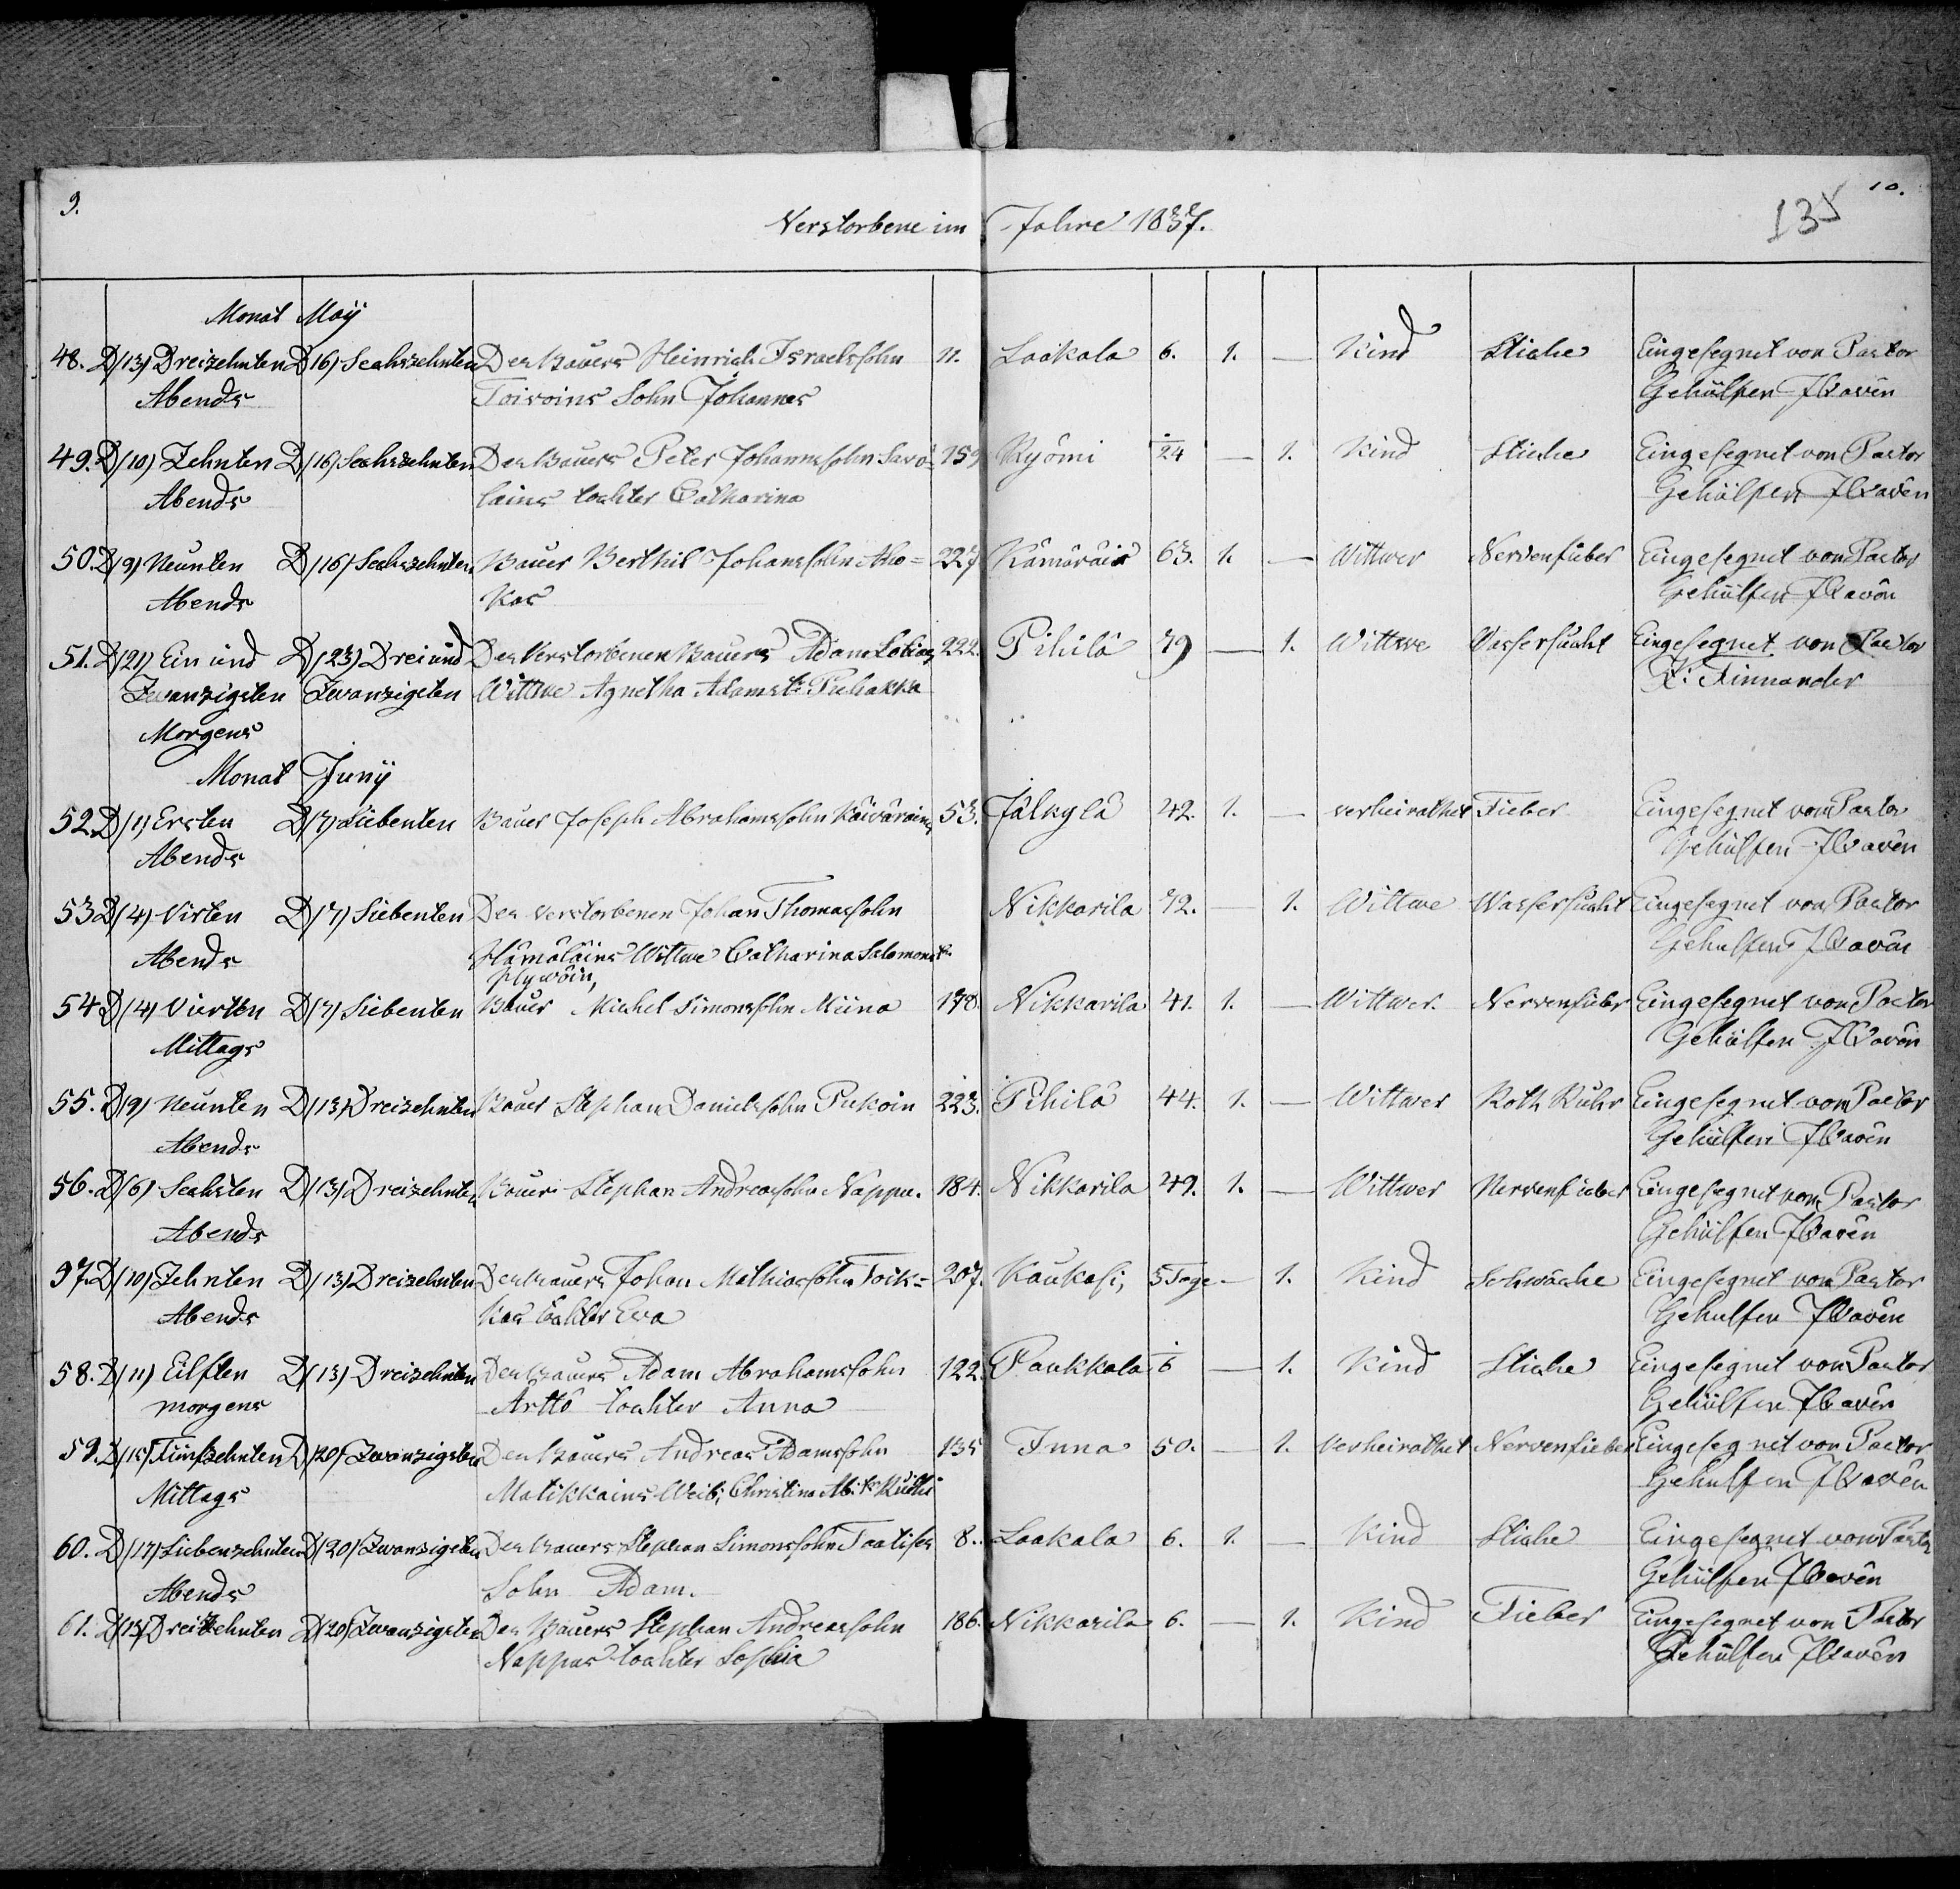 9.
10.
135
Verstorbene im Jahre 1837.
Monat May
48. D/13/ Dreizehnten D/16/ Sechszehnten Des Bauers Heinrich Israelssohn 11. Laakala 6. 1. — Kind Stiche Eingesegnet von Pastor
Abends Toivoins Sohn Johannes Gehülfen
49. D/10/ Zehnten D/16/ Sechszehnten Des Bauers Peter Johannssohn Savo- 159 Ryömi 24 — 1. Kind Stiche Eingesegnet von Pastor
Abends lains tochter Catharina Gehülfen
50. D/9/ Neunten D/16/ Sechszehnten Bauer Berthil Johanssohn Aho= 227 63. 1. — Wittwer Nervenfieber Eingesegnet von Pastor
Abends kas Gehülfen
51. D/21/ Ein und D/23/ Drei und Des Verstorbenen Bauers Adam 222. Pihilä 79 — 1. Wittwe Wassersucht Eingesegnet von Pastor
Zwanzigsten Zwanzigsten Wittwe Agnetha Adamst: Puhakka K: Finnander
Morgens
Monat Juny
52. D/1/ Ersten D/7/ Siebenten Bauer Joseph Abrahamssohn 53. Jälkylä 42. 1. — verheirathet Fieber Eingesegnet von Pastor
Abends Gehülfen
53. D/4/ Virten D/7/ Siebenten Des verstorbenen Johan Thomassohn Nikkarila 72. — 1. Wittwe Wassersucht Eingesegnet von Pastor
Abends Hämäläins Wittwe Catharina Salomonst: Gehülfen
54. D/4/ Vierten D/7/ Siebenten Bauer Michel Simonssohn Miina 178. Nikkarila 41. 1. — Wittwer. Nervenfieber Eingesegnet von Pastor
Mittags Gehülfen
55. D/9/ Neunten D/13/ Dreizehnten Bauer Stephan Danielssohn Pukoin 223. Pihilä 44. 1. — Wittwer Roth Ruhr Eingesegnet von Pastor
Abends Gehülfen
56. D/6/ Sechsten D/13/ Dreizehnten Bauer Stephan Andreassohn Nappu. 184. Nikkarila 49. 1. — Wittwer Nervenfieber Eingesegnet von Pastor
Abends Gehülfen
97. D/10/ Zehnten D/13/ Dreizehnten Des Bauers Johan Mathiassohn Toik= 207. Kaukasi, 5 Tage — 1. Kind Schwäche Eingesegnet von Pastor
Abends kas tochter Eva Gehülfen
58. D/11/ Eilften D/13/ Dreizehnten Des Bauers Adam Abrahamssohn 122. Paukkala 6 — 1. Kind Stiche Eingesegnet von Pastor
morgens Arttö tochter Anna Gehülfen
59. D/15/ Fünfzehnten D/20/ Zwanzigsten Des Bauers Andreas Adamssohn 135 Inna 50. — 1. Verheirathet Nervenfieber Eingesegnet von Pastor
Mittags Matikkains Weib, Christina Gehülfen
60. D/17/ Siebenzehnten D/20/ Zwanzigsten Des Bauers Stephan Simonssohn 8. Laakala 6. 1. — Kind Stiche Eingesegnet von Pastor
Abends Sohn Adam. Gehülfen
61. D/13/ Dreizehnten D/20/ Zwanzigsten Des Bauers Stephan Andreassohn 186. Nikkarila 6. — 1. Kind Fieber Eingesegnet von Pastor
Nappus tochter Sophia Gehülfen